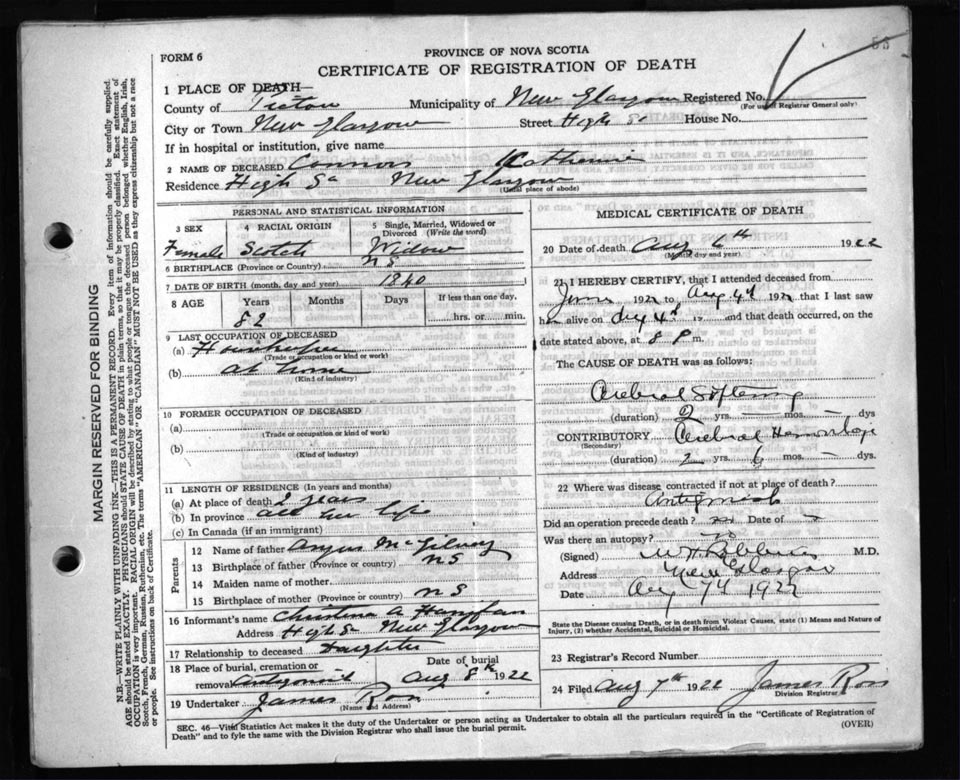 55
FORM 6
PROVINCE OF NOVA SCOTIA
CERTIFICATE OF REGISTRATION OF DEATH
1 PLACE OF DEATH—
County of Pictou Municipality of New Glasgow Registered No.
(For use of Registrar General only)
City or Town New Glasgow Street High St House No.
If in hospital or institution, give name
2 NAME OF DECEASED Connors Katherine
Residence High St New Glasgow
(Usual place of abode)
PERSONAL AND STATISTICAL INFORMATION
3 SEX 4 RACIAL ORIGIN 5 Single, Married, Widowed or Divorced (Write the word)
Female Scotch Widow
6 BIRTHPLACE (Province or Country) N S
7 DATE OF BIRTH (month, day and year) 1840
8 AGE Years Months Days If less than one day,
82 hrs. or min.
9 LAST OCCUPATION OF DECEASED
(a) Housekeeper
(Trade or occupation or kind or work)
(b) at home
(Kind of industry)
10 FORMER OCCUPATION OF DECEASED
(a)
(Trade or occupation or kind of work)
(b)
(Kind of industry)
11 LENGTH OF RESIDENCE (In years and months)
(a) At place of death 2 years
(b) In province all her life
(c) In Canada (if an immigrant)
Parents
12 Name of father Angus McGilvray
13 Birthplace of father (Province or country) N S
14 Maiden name of mother
15 Birthplace of mother (Province or country) N S
16 Informant's name Christina A Hanifan
Address High St New Glasgow
17 Relationship to deceased Daughter
18 Place of burial, cremation or removal Antigonish Date of burial Aug 8th 1922
19 Undertaker James Ross
(Name and Address)
MEDICAL CERTIFICATE OF DEATH
20 Date of death Aug 6th 1922
(Month, day and year)
21 I HEREBY CERTIFY, that I attended deceased from
June 1922 to Aug 4th 1922 that I last saw
her alive on Aug 4th 19 and that death occurred, on the
date stated above, at 8 P m.
The CAUSE OF DEATH was as follows:
Cerebral Softening
(duration) 2 yrs. — mos. — dys
CONTRIBUTORY Cerebral Hemorrhage
(Secondary)
(duration) 2 yrs. 6 mos. — dys.
22 Where was disease contracted if not at place of death?
Antigonish
Did an operation precede death? no Date of —
Was there an autopsy? no
(Signed) M.D.
Address New Glasgow
Date Aug 7th 1922
State the Disease Causing Death, or in death from Violent Causes, state (1) Means and Nature of
Injury, (2) whether Accidental, Suicidal or Homicidal.
23 Registrar's Record Number
24 Filed Aug 7th 1922 James Ross
Division Registrar
SEC. 46—Vital Statistics Act makes it the duty of the Undertaker or person acting as Undertaker to obtain all the particulars required in the "Certificate of Registration of
Death" and to fyle the same with the Division Registrar who shall issue the burial permit. (OVER)
MARGIN RESERVED FOR BINDING
N.B.—WRITE PLAINLY WITH UNFADING INK—THIS IS A PERMANENT RECORD. Every item of information should be carefully supplied.
AGE should be stated EXACTLY. PHYSICIANS should STATE CAUSE OF DEATH in plain terms, so that it may be properly classified. Exact statement of
OCCUPATION is very important. RACIAL ORIGIN will be described by stating to what people or tongue the deceased person belonged whether English, Irish,
Scotch, French, German, Russian, Ruthenian, etc. The terms "AMERICAN" OR "CANADIAN" MUST NOT BE USED as they express citizenship but not a race
or people. See instructions on back of Certificate.